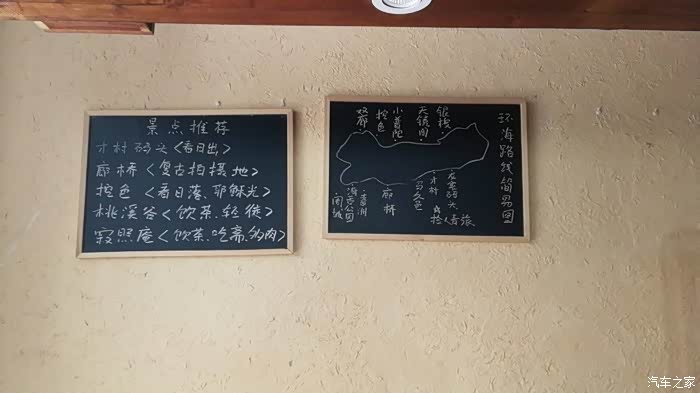 景点推荐
才村码头<看日出>
廊桥<复古拍摄地>
挖色<看日落、耶稣光>
桃溪谷<饮茶、轻徒>
寂照庵<饮茶、吃斋、多肉>
环海路线简易图
双廊
挖色
小普陀
天镜阁
海舌公园
廊桥
才村
龙龛码头
汽车之家